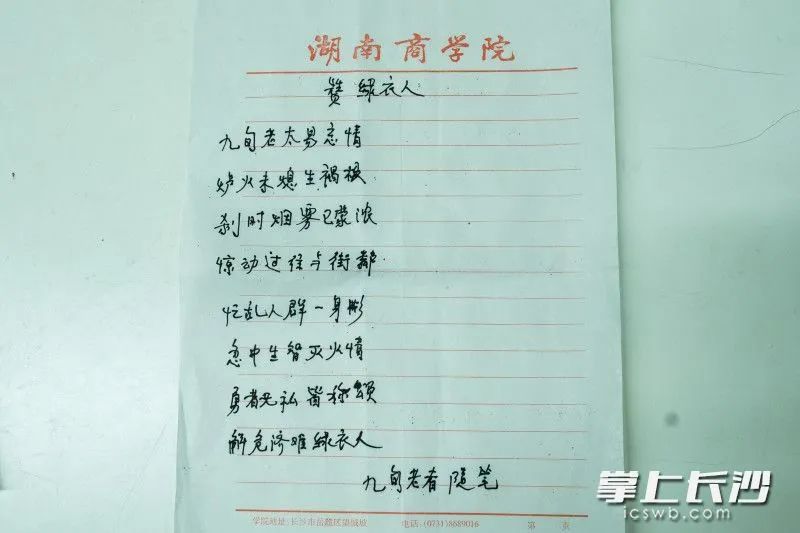 湖南商学院
赞绿衣人
九旬老太易忘情
炉火未熄生祸根
刹时烟雾已蒙浓
惊动过往与街邻
忙乱人群一身影
急中生智灭火情
勇者无私皆称颂
解危济难绿衣人
九旬老者 随笔
学院地址:长沙市岳麓区望城坡 电话:(0731)8689016 第 页
掌上长沙
icswb.com